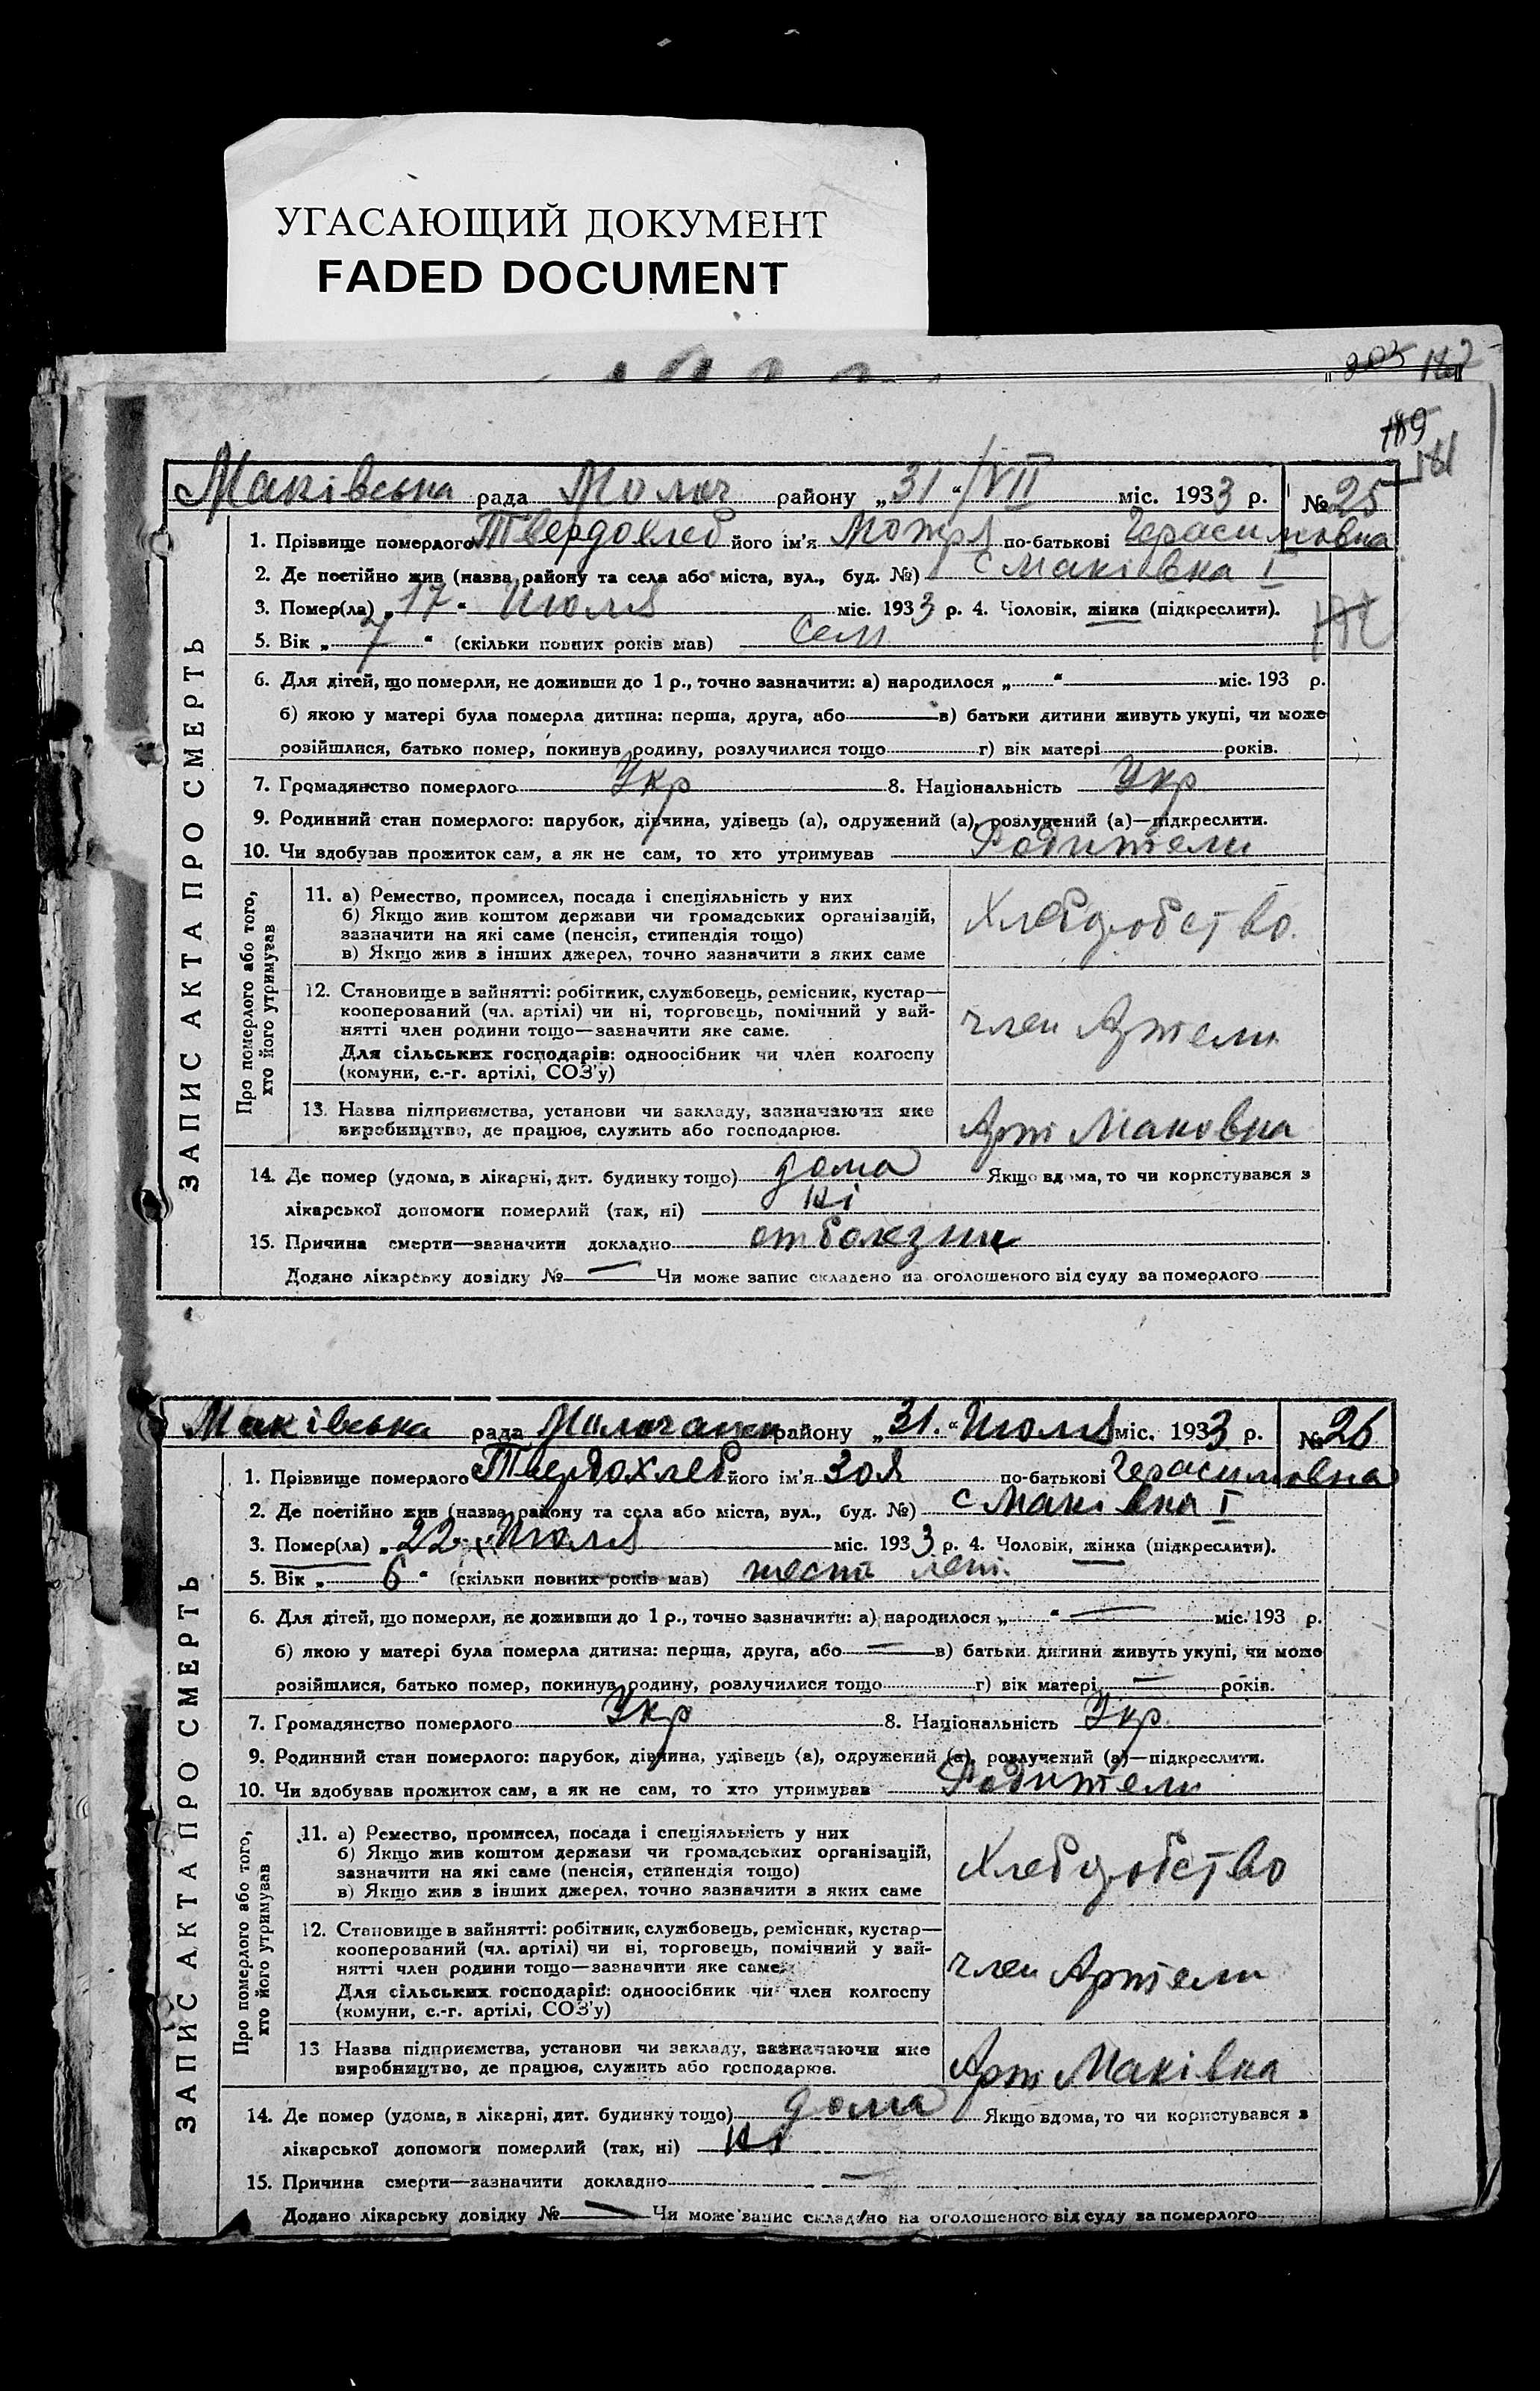 УГАСАЮЩИЙ ДОКУМЕНТ
FADED DOCUMENT
189
181
Маківська рада Молоч району „31“/VII міс. 1933 р. № 25
1. Прізвище померлого Твердохлеб його ім'я Мотря по-батькові Герасимовна
2. Де постійно жив (назва району та села або міста, вул., буд. №) с Маківка I
3. Помер(ла) „17“ Июля міс. 1933 р. 4. Чоловік, жінка (підкреслити).
5. Вік „7“ (скільки повних років мав) Сем
6. Для дітей, що померли, не доживши до 1 р., точно зазначити: а) народилося „ “ міс. 193 р.
б) якою у матері була померла дитина: перша, друга, або в) батьки дитини живуть укупі, чи може
розійшлися, батько помер, покинув родину, розлучилися тощо г) вік матері років.
7. Громадянство померлого Укр 8. Національність Укр
9. Родинний стан померлого: парубок, дівчина, удівець (а), одружений (а), розлучений (а)—підкреслити.
10. Чи здобував прожиток сам, а як не сам, то хто утримував Родители
ЗАПИС АКТА ПРО СМЕРТЬ
Про померлого або того,
хто його утримував
11. а) Ремество, промисел, посада і спеціяльність у них
б) Якщо жив коштом держави чи громадських організацій,
зазначити на які саме (пенсія, стипендія тощо)
в) Якщо жив з інших джерел, точно зазначити з яких саме
Хлебдобство.
12. Становище в зайнятті: робітник, службовець, ремісник, кустар—
кооперований (чл. артілі) чи ні, торговець, помічний у зай-
нятті член родини тощо—зазначити яке саме.
Для сільських господарів: одноосібник чи член колгоспу
(комуни, с.-г. артілі, СОЗ'у)
член Артели
13. Назва підприємства, установи чи закладу, зазначаючи яке
виробництво, де працює, служить або господарює.
Арт Маковка
14. Де помер (удома, в лікарні, дит. будинку тощо) дома Якщо вдома, то чи користувався з
лікарської допомоги померлий (так, ні) ні
15. Причина смерти—зазначити докладно от болезни
Додано лікарську довідку № — Чи може запис складено на оголошеного від суду за померлого
Маківська рада Молочанск району „31.“ Июля міс. 1933 р. № 26
1. Прізвище померлого Твердохлеб його ім'я Зоя по-батькові Герасимовна
2. Де постійно жив (назва району та села або міста, вул., буд. №) с Маківка I
3. Помер(ла) „22“ Июля міс. 1933 р. 4. Чоловік, жінка (підкреслити).
5. Вік „6“ (скільки повних років мав) шесть лет.
6. Для дітей, що померли, не доживши до 1 р., точно зазначити: а) народилося „ “ — міс. 193 р.
б) якою у матері була померла дитина: перша, друга, або — в) батьки дитини живуть укупі, чи може
розійшлися, батько помер, покинув родину, розлучилися тощо г) вік матері — років.
7. Громадянство померлого Укр 8. Національність Укр.
9. Родинний стан померлого: парубок, дівчина, удівець (а), одружений (а), розлучений (а)—підкреслити.
10. Чи здобував прожиток сам, а як не сам, то хто утримував Родители
ЗАПИС АКТА ПРО СМЕРТЬ
Про померлого або того,
хто його утримував
11. а) Ремество, промисел, посада і спеціяльність у них
б) Якщо жив коштом держави чи громадських організацій,
зазначити на які саме (пенсія, стипендія тощо)
в) Якщо жив з інших джерел, точно зазначити з яких саме
Хлебдобство
12. Становище в зайнятті: робітник, службовець, ремісник, кустар—
кооперований (чл. артілі) чи ні, торговець, помічний у зай-
нятті член родини тощо—зазначити яке саме.
Для сільських господарів: одноосібник чи член колгоспу
(комуни, с.-г. артілі, СОЗ'у)
член Артели
13 Назва підприємства, установи чи закладу, зазначаючи яке
виробництво, де працює, служить або господарює.
Арт Маківка
14. Де помер (удома, в лікарні, дит. будинку тощо) дома Якщо вдома, то чи користувався з
лікарської допомоги померлий (так, ні) ні
15. Причина смерти—зазначити докладно —
Додано лікарську довідку № — Чи може запис складено на оголошеного від суду за померлого